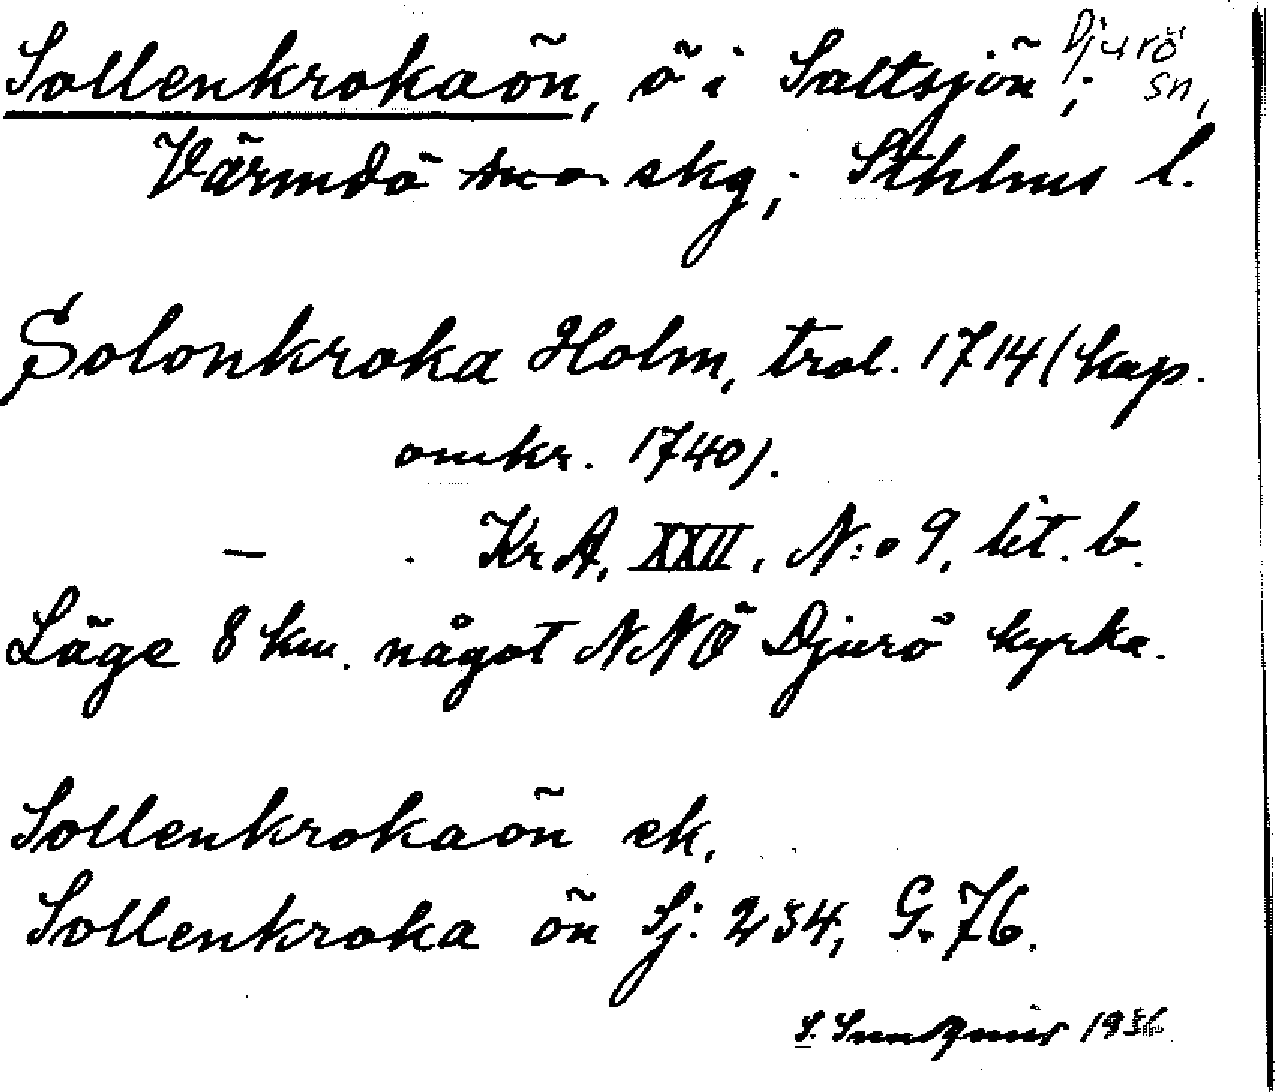 Sollenkrokaön, ö i Saltsjön, Djurö sn,
Värmdö skg; Sthlms l.
Solonkroka Holm, trol. 1714 (kop.
omkr. 1740).
— . KrA, XXII, N:o 9, lit. b.
Läge 8 km. något NNÖ Djurö kyrka.
Sollenkrokaön ek.
Sollenkroka ön Sj: 234, G. 76.
S.